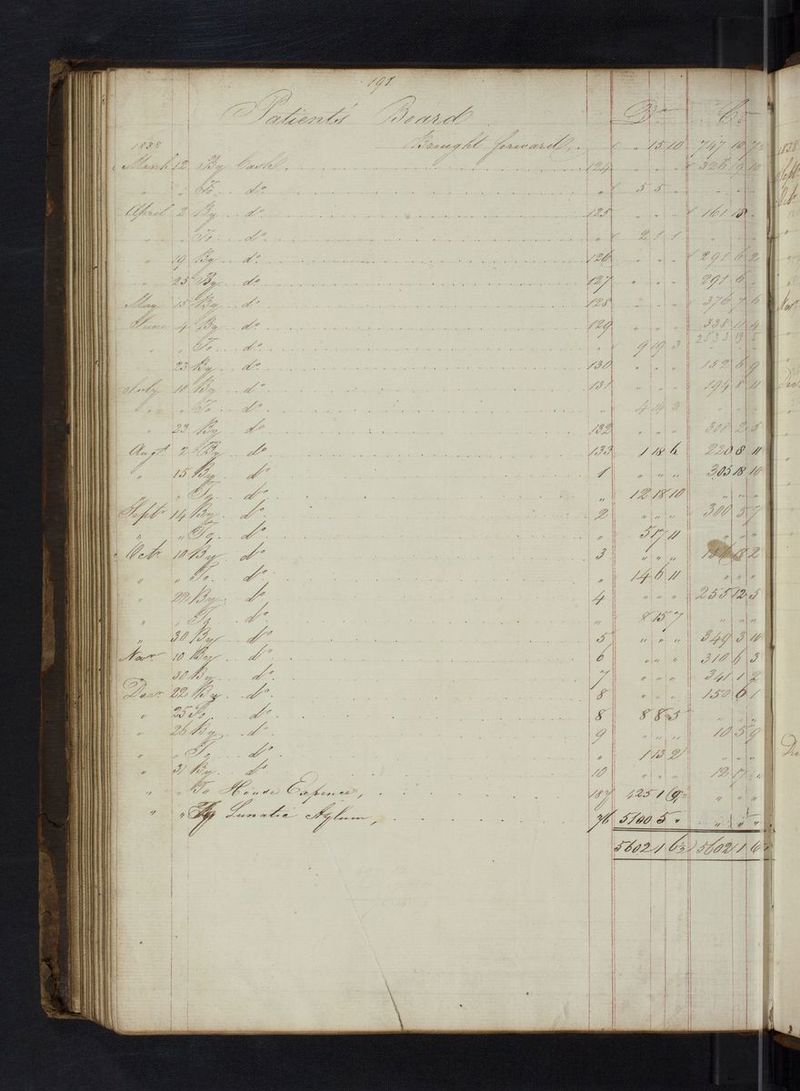 198
Patients' Board Dr Cr
1838 Brought forward 15 10 747 18 7
March 12 By Cash 124 326 9 10
" " To do " 5 5
April 2 By do 125 161 18
" " To do " 2 1 1
" 19 By do 126 291 6 2
" 25 By do 127 291 6
May 15 By do 128 376 7 6
June 4 By do 129 338 11 4
2533 19 5
" " To do " 9 19 3
" 23 By do 130 152 6 9
July 10 By do 131 194 8 11
" " To do " 4 4 3
" 23 By do 132 308 2 5
Augt 2 By do 133 1 18 6 220 8 11
" 15 By do 1 " " " 305 18 10
" " To do " 12 18 10 " " "
Sept 14 By do 2 " " " 300 5 7
" " To do " 5 17 11 " " "
Oct 10 By do 3 " " " 18 2
" " To do " 14 6 11 " " "
" By do 4 " " " 255 12 5
" " To do " 8 15 7 " " "
" 30 By do 5 " " " 349 3 10
Novr 10 By do 6 " " " 310 6 3
" 30 By do 7 " " " 341 1 2
Decr 22 By do 8 " " " 150 6 1
" 25 To do 8 8 8 5 " " "
" 26 By do 9 " " " 10 5 9
" " To do " 1 13 2 " " "
" 31 By do 10 " " " 12 17 "
" " To House Expences, 187 425 1 9 " " "
" " To Lunatic Asylum, 76 5100 5 "
5602 1 6½ 5602 1 6